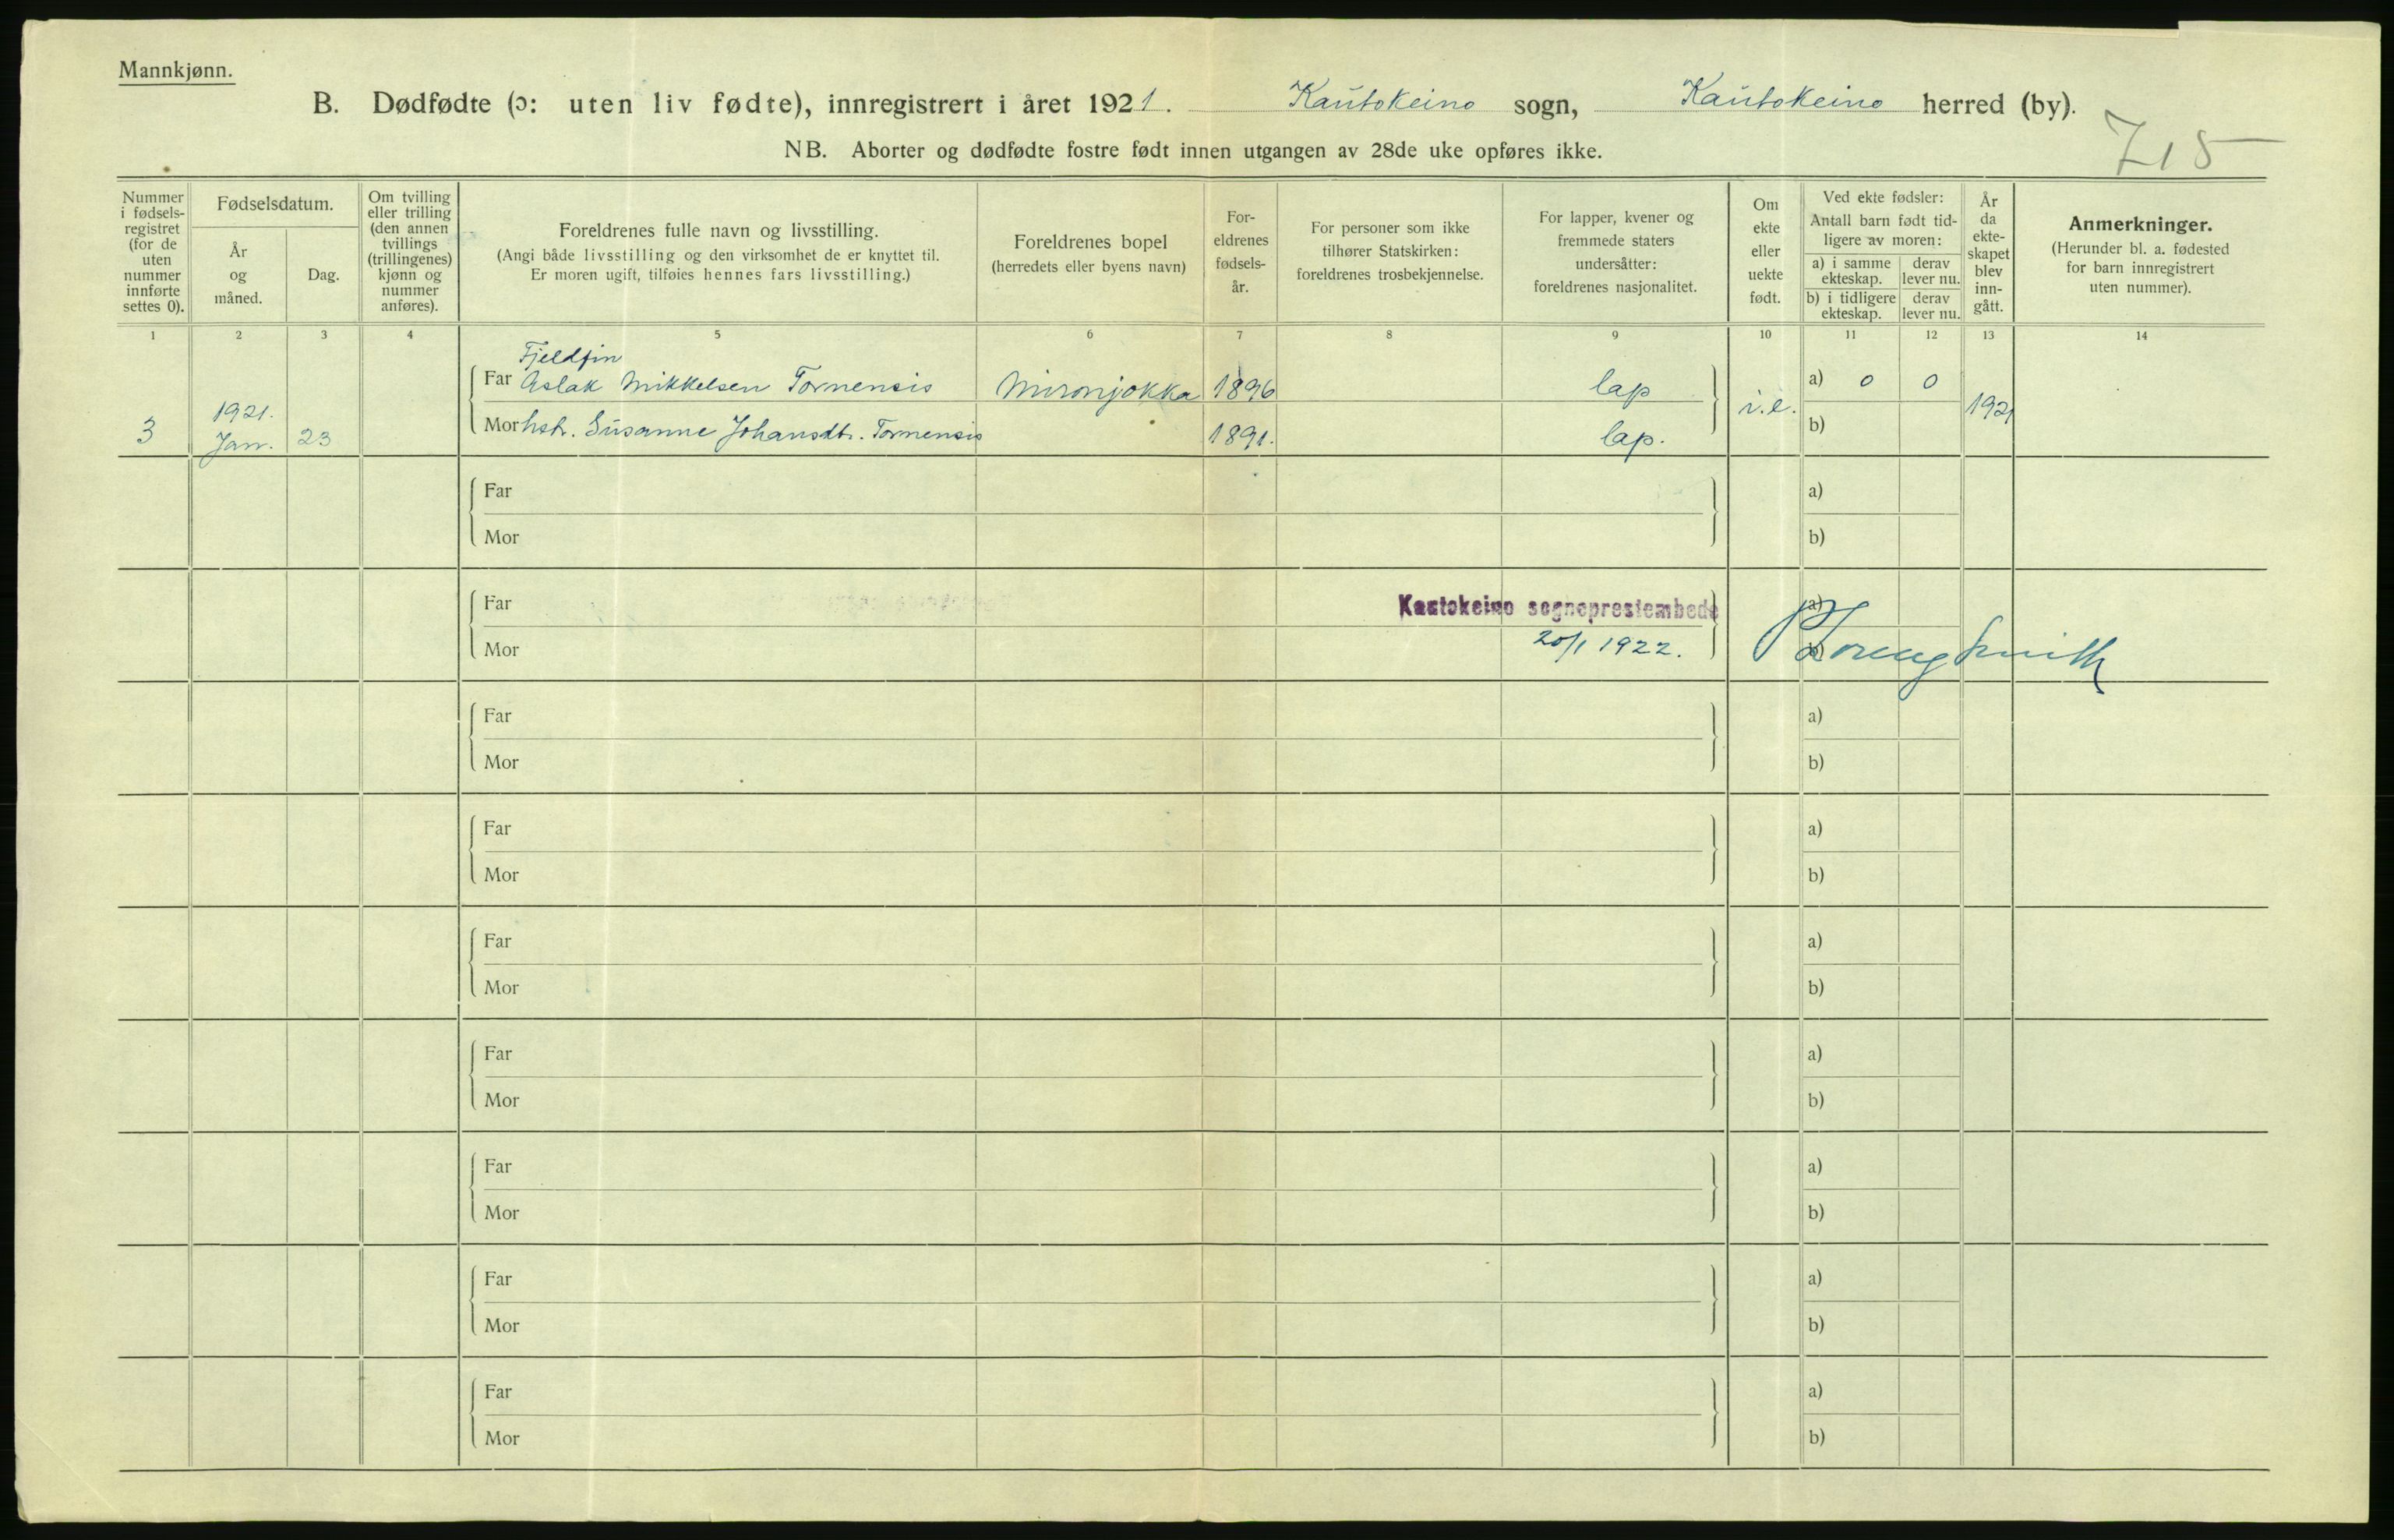 Mannkjønn.
B. Dødfødte (ɔ: uten liv fødte), innregistrert i året 1921. Kautokeino sogn, Kautokeino herred (by).
NB. Aborter og dødfødte fostre født innen utgangen av 28de uke opføres ikke.
715
Nummer i fødsels-registret (for de uten nummer innførte settes 0).
Fødselsdatum.
År og måned.
Dag.
Om tvilling eller trilling (den annen tvillings (trillingenes) kjønn og nummer anføres).
Foreldrenes fulle navn og livsstilling.
(Angi både livsstilling og den virksomhet de er knyttet til.
Er moren ugift, tilføies hennes fars livsstilling.)
Foreldrenes bopel
(herredets eller byens navn)
For-eldrenes fødsels-år.
For personer som ikke tilhører Statskirken: foreldrenes trosbekjennelse.
For lapper, kvener og fremmede staters undersåtter: foreldrenes nasjonalitet.
Om ekte eller uekte født.
Ved ekte fødsler:
Antall barn født tid-ligere av moren:
a) i samme ekteskap.
derav lever nu.
b) i tidligere ekteskap.
derav lever nu.
År da ekte-skapet blev inn-gått.
Anmerkninger.
(Herunder bl. a. fødested for barn innregistrert uten nummer).
1 2 3 4 5 6 7 8 9 10 11 12 13 14
Fjeldfin
Far Aslak Mikkelsen Tornensis Mironjokka 1896 lap a) 0 0
3 1921. Jan. 23 i.e. 1921
Mor hstr. Susanne Johansdtr. Tornensis 1891. lap. b)
Far a)
Mor b)
Far Kautokeino sogneprestembede a)
Mor 20/1 1922.
Far a)
Mor b)
Far a)
Mor b)
Far a)
Mor b)
Far a)
Mor b)
Far a)
Mor b)
Far a)
Mor b)
Far a)
Mor b)